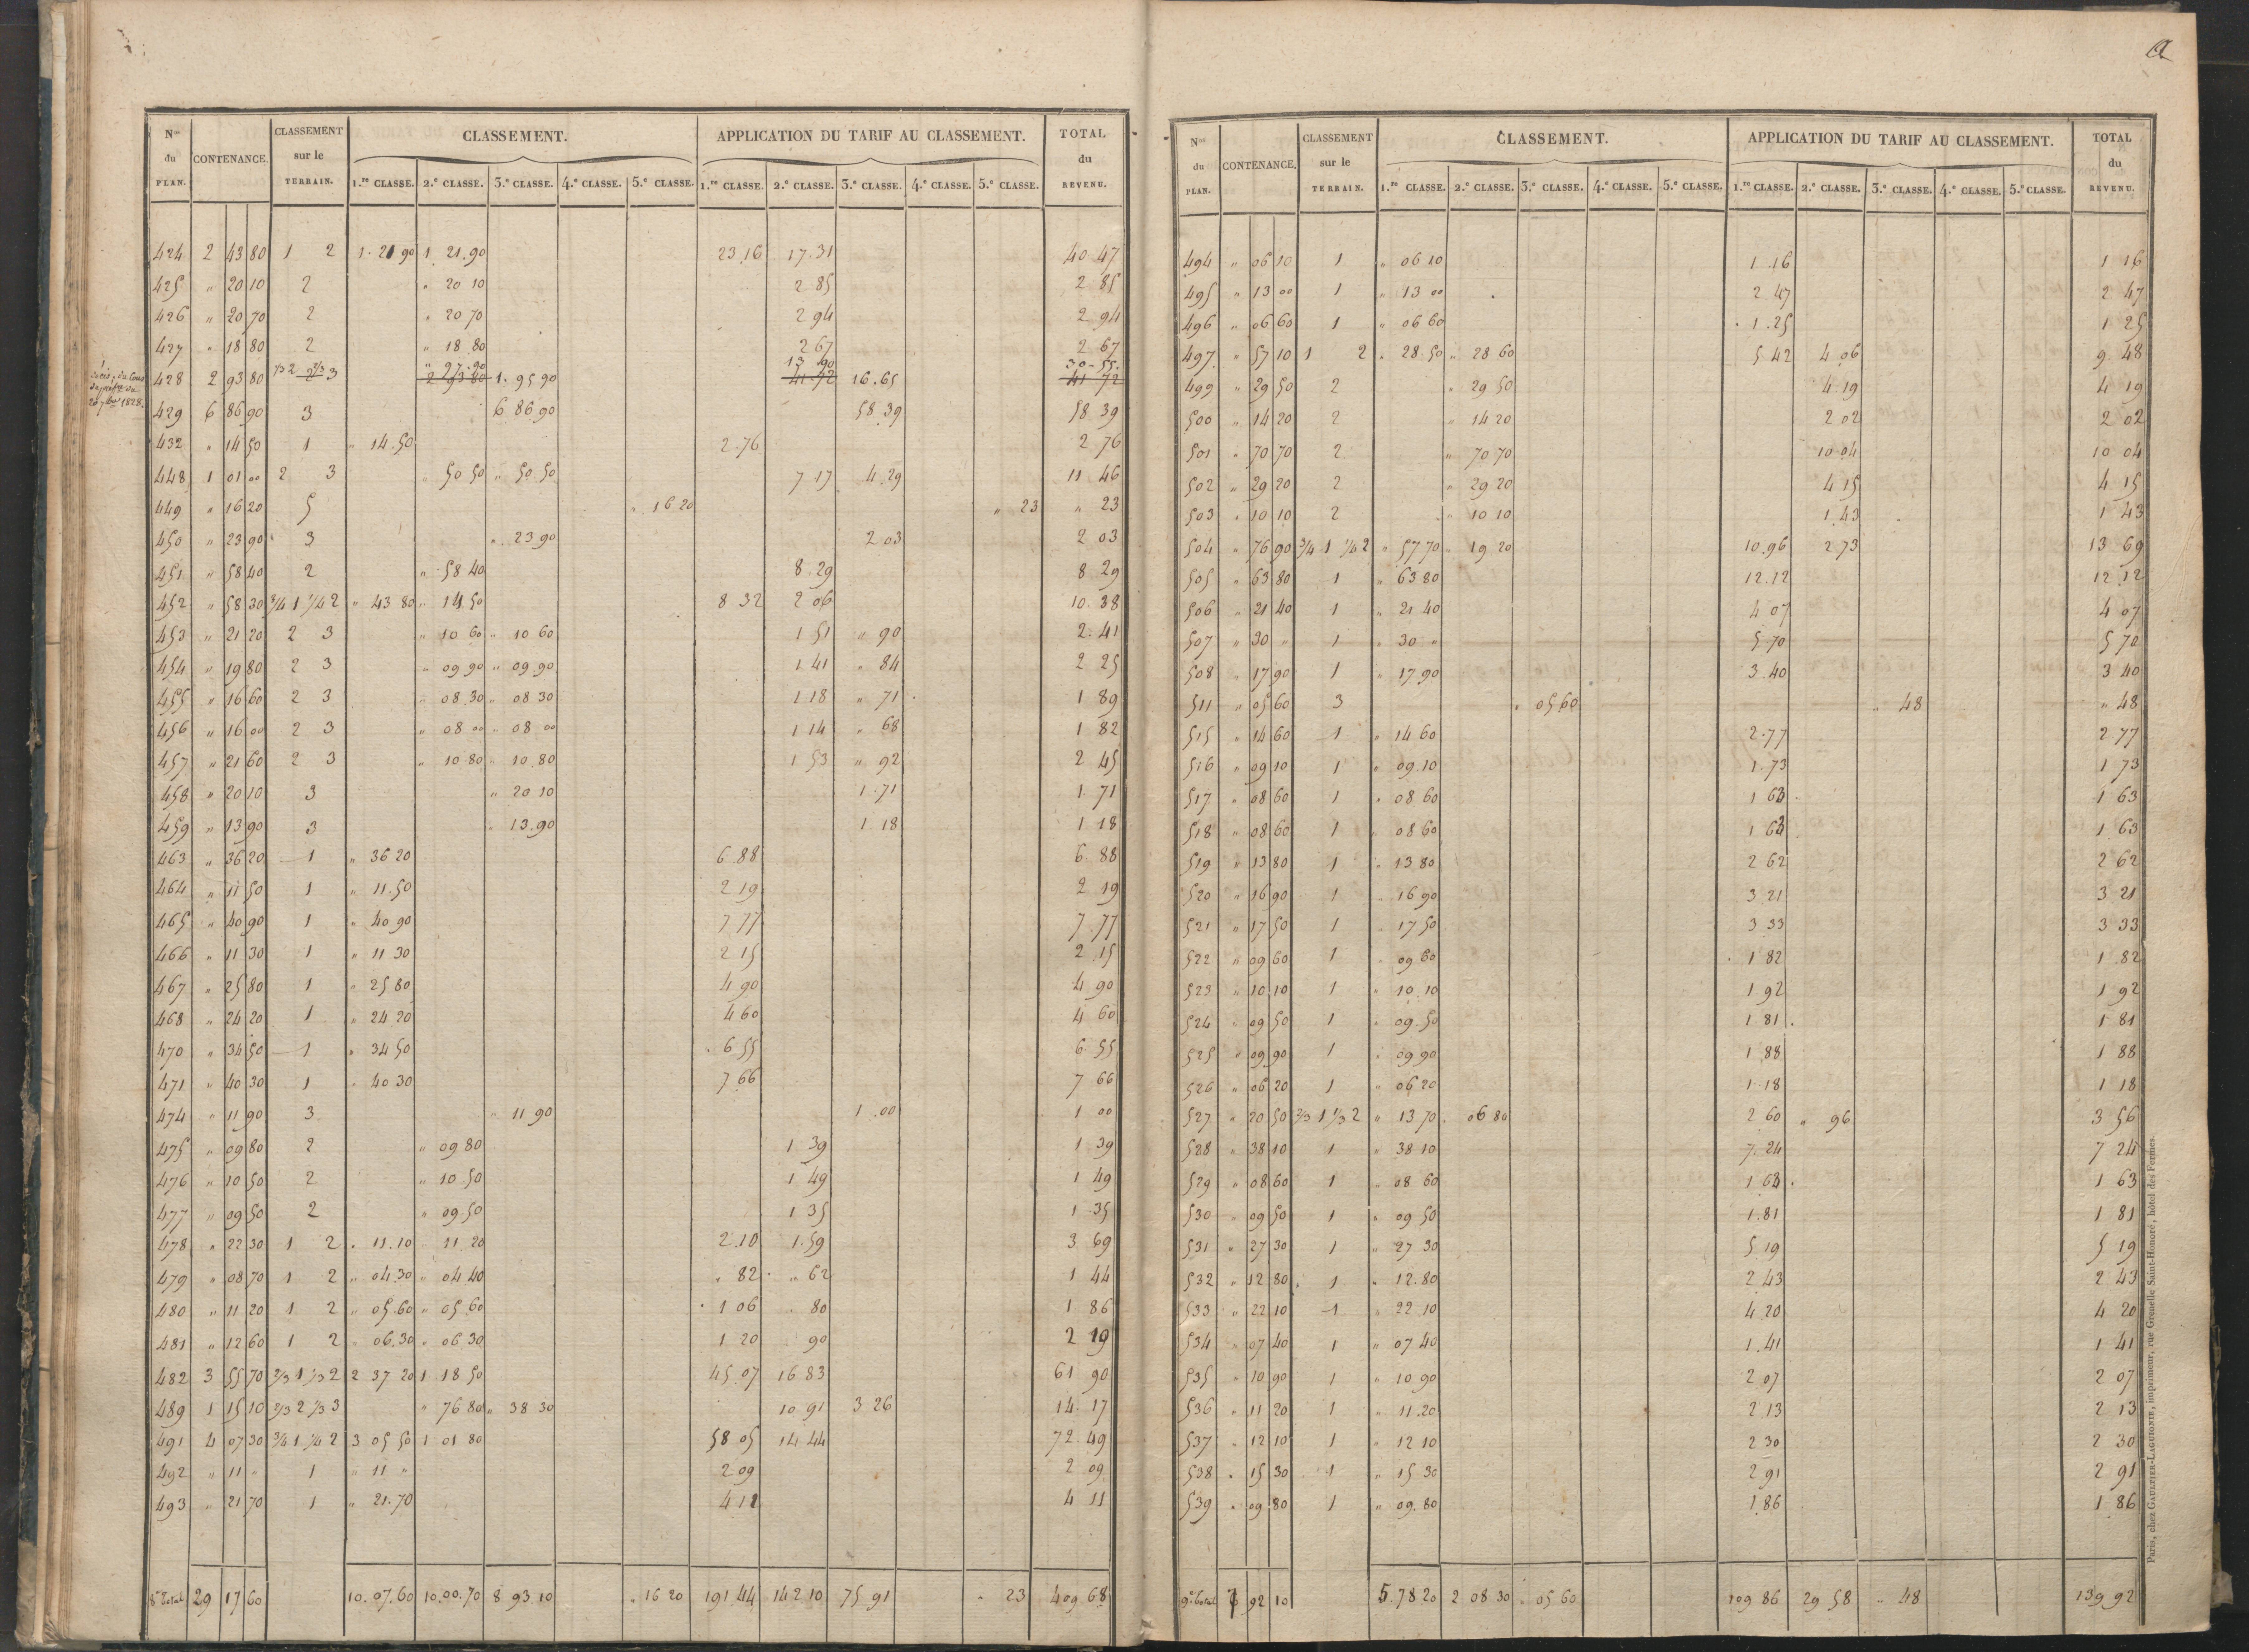 a
Nos du PLAN. CONTENANCE. CLASSEMENT sur le TERRAIN. CLASSEMENT. APPLICATION DU TARIF AU CLASSEMENT. TOTAL du REVENU.
1.re CLASSE. 2.e CLASSE. 3.e CLASSE. 4.e CLASSE. 5.e CLASSE. 1.re CLASSE. 2.e CLASSE. 3.e CLASSE. 4.e CLASSE. 5.e CLASSE.
424 2 43 80 1 2 1. 21 90 1 21.90 23 16 17.31 40 47
425 " 20 10 2 " 20 10 2 85 2 85
426 " 20 70 2 " 20 70 2 94 2 94
427 " 18 80 2 " 18 80 2 67 2 67
" 97.90 13 90 30-55.
428 2 93 80 1/3 2 2/3 3 2 93 80 1. 95 90 41 72 16.65 41 72
20 7bre 1828.
429 6 86 90 3 6 86 90 58 39 58 39
432 " 14 50 1 " 14.50 2.76 2 76
448 1 01 00 2 3 " 50 50 " 50.50 7 17 4.29 11 46
449 " 16 20 5 " 16 20 " 23 " 23
450 " 23 90 3 " 23 90 2 03 2 03
451 " 58 40 2 " 58 40 8.29 8 29
452 " 58 30 3/4 1 1/4 2 " 43 80 " 14.50 8 32 2 06 10.38
453 " 21 20 2 3 " 10 60 " 10 60 1 51 " 90 2.41
454 " 19 80 2 3 " 09 90 " 09.90 1 41 " 84 2 25
455 " 16 60 2 3 " 08.30 " 08 30 1 18 " 71 1 89
456 " 16 00 2 3 " 08 00 " 08 00 1 14 " 68 1 82
457 " 21 60 2 3 " 10 80 " 10.80 1 53 " 92 2 45
458 " 20 10 3 " 20 10 1.71 1 71
459 " 13 90 3 " 13.90 1 18 1 18
463 " 36 20 1 " 36 20 6.88 6 88
464 " 11 50 1 " 11.50 2 19 2 19
465 " 40 90 1 " 40 90 7 77 7 77
466 " 11 30 1 " 11 30 2 15 2.15
467 " 25 80 1 " 25 80 4 90 4 90
468 " 24 20 1 " 24 20 4 60 4 60
470 " 34 50 1 " 34 50 6 55 6 55
471 " 40 30 1 " 40 30 7 66 7 66
474 " 11 90 3 " 11 90 1.00 1 00
475 " 09 80 2 " 09 80 1 39 1 39
476 " 10 50 2 " 10.50 1 49 1 49
477 " 09 50 2 " 09.50 1 35 1 35
478 " 22 30 1 2 " 11.10 " 11 20 2.10 1.59 3 69
479 " 08 70 1 2 " 04.30 " 04 40 " 82 " 62 1 44
480 " 11 20 1 2 " 05.60 " 05.60 1 06 " 80 1 86
481 " 12 60 1 2 " 06.30 " 06 30 1 20 " 90 2 19
482 3 55 70 2/3 1 1/3 2 2 37 20 1 18 50 45.07 16 83 61 90
489 1 15 10 2/3 2 1/3 3 " 76 80 " 38 30 10 91 3 26 14.17
491 4 07 30 3/4 1 1/4 2 3 05 50 1 01 80 58 05 14 44 72 49
492 " 11 " 1 " 11 " 2 09 2 09
493 " 21 70 1 " 21.70 4 12 4 11
8e Total 29 17 60 10.07.60 10.00.70 8 93.10 " 16 20 191 44 142 10 75 91 " 23 409 68
Nos du PLAN. CONTENANCE. CLASSEMENT sur le TERRAIN. CLASSEMENT. APPLICATION DU TARIF AU CLASSEMENT. TOTAL du REVENU.
1.re CLASSE. 2.e CLASSE. 3.e CLASSE. 4.e CLASSE. 5.e CLASSE. 1.re CLASSE. 2.e CLASSE. 3.e CLASSE. 4.e CLASSE. 5.e CLASSE.
494 " 06 10 1 " 06 10 1.16 1 16
495 " 13 00 1 " 13 00 2 47 2 47
496 " 06 60 1 " 06 60 1.25 1 25
497 " 57 10 1 2 " 28.50 " 28 60 5 42 4 06 9.48
499 " 29 50 2 " 29 50 4 19 4 19
500 " 14 20 2 " 14 20 2 02 2 02
501 " 70 70 2 " 70 70 10 04 10 04
502 " 29 20 2 " 29 20 4 15 4 15
503 " 10 10 2 " 10 10 1.43 1 43
504 " 76 90 3/4 1 1/4 2 " 57 70 " 19 20 10.96 2 73 13 69
505 " 63 80 1 " 63 80 12.12 12 12
506 " 21 40 1 " 21 40 4 07 4 07
507 " 30 " 1 " 30 " 5 70 5 70
508 " 17 90 1 " 17.90 3 40 3 40
511 " 05 60 3 " 05 60 " 48 " 48
515 " 14 60 1 " 14 60 2.77 2 77
516 " 09 10 1 " 09.10 1.73 1 73
517 " 08 60 1 " 08 60 1 63 1 63
518 " 08 60 1 " 08 60 1 63 1 63
519 " 13 80 1 " 13 80 2 62 2 62
520 " 16 90 1 " 16 90 3 21 3 21
521 " 17 50 1 " 17.50 3 33 3 33
522 " 09 60 1 " 09 60 1 82 1 82
523 " 10 10 1 " 10.10 1 92 1 92
524 " 09 50 1 " 09.50 1 81 1 81
525 " 09 90 1 " 09 90 1 88 1 88
526 " 06 20 1 " 06 20 1.18 1 18
527 " 20 50 2/3 1 1/3 2 " 13.70 " 06 80 2 60 " 96 3 56
528 " 38 10 1 " 38 10 7.24 7 24
529 " 08 60 1 " 08 60 1 63 1 63
530 " 09 50 1 " 09 50 1.81 1 81
531 " 27 30 1 " 27 30 5 19 5 19
532 " 12 80 1 " 12.80 2.43 2 43
533 " 22 10 1 " 22 10 4.20 4 20
534 " 07 40 1 " 07 40 1.41 1 41
535 " 10 90 1 " 10 90 2 07 2 07
536 " 11 20 1 " 11.20 2 13 2 13
537 " 12 10 1 " 12 10 2 30 2 30
538 " 15 30 1 " 15 30 2 91 2 91
539 " 09 80 1 " 09.80 1 86 1 86
9e total 7 92 10 5.78 20 2 08 30 " 05 60 109 86 29 58 " 48 139 92
Paris, chez GAULTIER-LAGUIONIE, imprimeur, rue Grenelle Saint-Honoré, hôtel des Fermes.